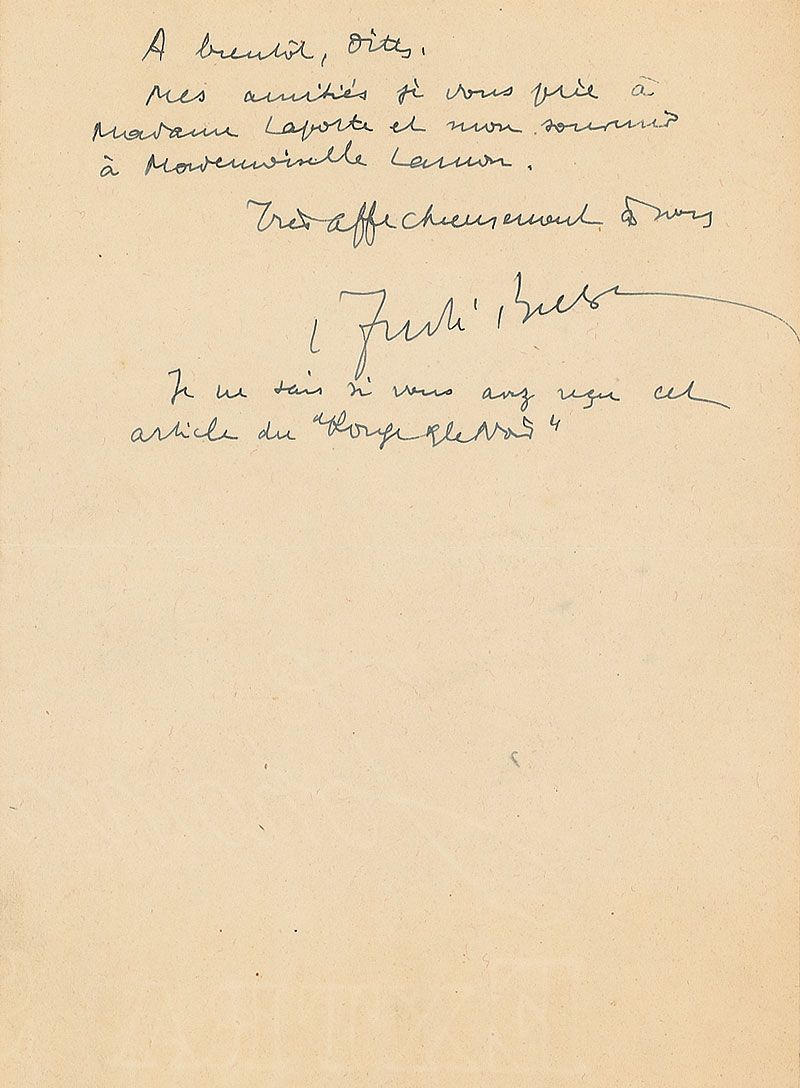 A bientôt, dites.
Mes amitiés je vous prie à
Madame Laporte et mon souvenir
à Mademoiselle Lamon.
Très affectueusement à vous
André
Je ne sais si vous avez reçu cet
article du "Rouge & le Noir"